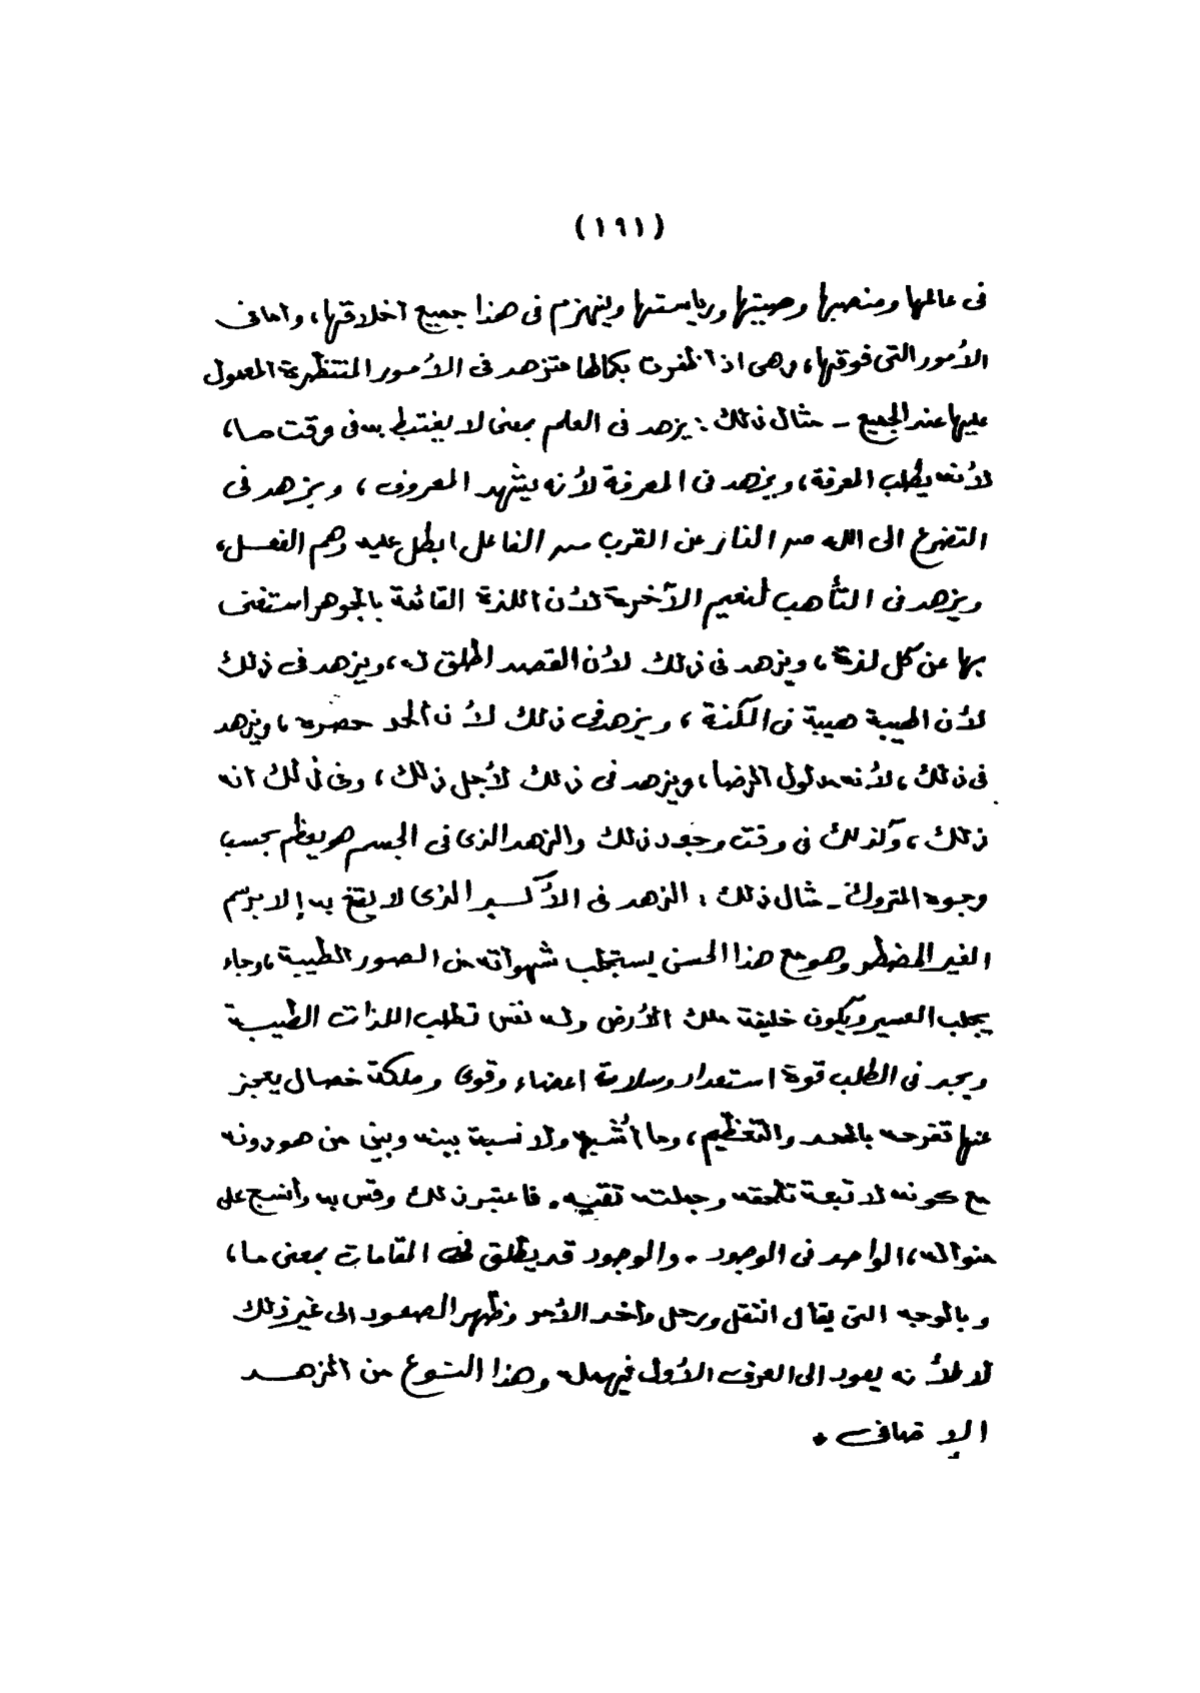 (١٩١)
فى عالمها ومنصبها وصيتها ورياستها وينهزم فى هذا جميع أخلاقها، واما فى
الأمور التى فوقها، وهى اذا ظفرت بكمالها فتزهد فى الأمور المنتظرة المعول
عليها عند الجميع - مثال ذلك : يزهد فى العلم بمعنى لا يغتبط به فى وقت ما،
لأنه يطلب المعرفة، ويزهد فى المعرفة لأنه يشهد المعروف، ويزهد فى
التضرع الى الله من النار عن القرب من الفاعل ابطل عليه وهم الفعل،
ويزهد فى التأهب لنعيم الآخرة لأن اللذة القائمة بالجوهر استغنى
بها عن كل لذة، ويزهد فى ذلك لأن القصد اطلق له، ويزهد فى ذلك
لأن الهيبة هيبة فى المكنة، ويزهد فى ذلك لأن الحد حضره، ويزهد
فى ذلك، لأنه مدلول الرضا، ويزهد فى ذلك لأجل ذلك، وفى ذلك انه
ذلك، وكذلك فى وقت وجود ذلك والزهد الذى فى الجسم هو يعظم بحسب
وجوه المتروك - مثال ذلك : الزهد فى الأكسير الذى لا يقع به إلا برسم
الغير المضطر وهو مع هذا الحسن يستجلب شهواته من الصور الطيبة، وجاء
يجلب العسير ويكون خليفة ملك الأرض وله نفس تطلب اللذات الطيبة
ويجد فى الطلب قوة استعداد وسلامة اعضاء وقوى وملكة خصال يعجز
عنها تفرحه بالمحمد والتعظيم، وما أشبه ولا نسبة بينه وبين من هو دونه
مع كونه لا تبعة تلحقه وجبلته تقيه. فاعتبر ذلك وقس به وأنسج على
منواله، الواحد فى الوجود. والوجود قد يطلق فى المقامات بمعنى ما،
وبالوجه التى يقال انتقل ورحل وأخذ الأمر وظهر الصعود الى غير ذلك
لا لأنه يعود الى العرف الأول فيهمله وهذا النوع من الزهد
الإضافى .